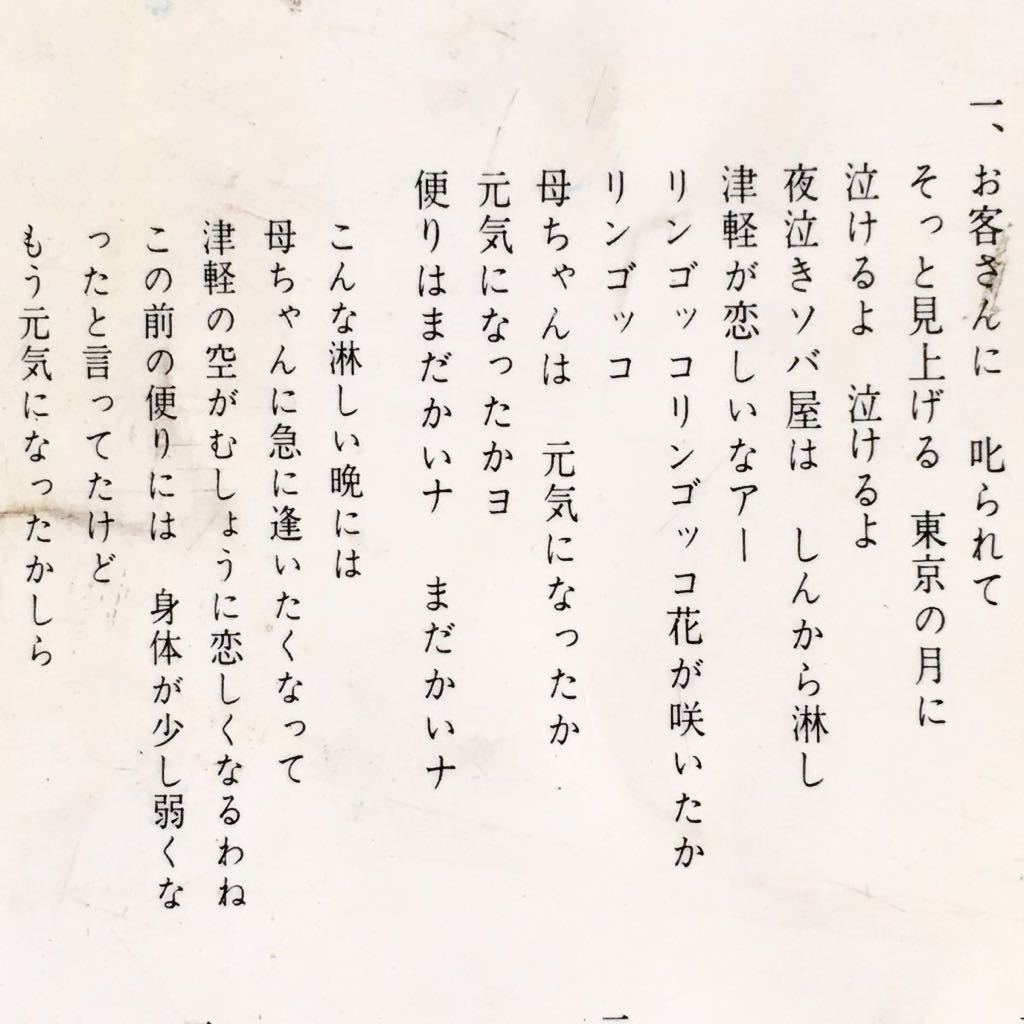 一、お客さんに　叱られて
そっと見上げる　東京の月に
泣けるよ　泣けるよ
夜泣きソバ屋は　しんから淋し
津軽が恋しいなアー
リンゴッコリンゴッコ花が咲いたか
リンゴッコ
母ちゃんは　元気になったか
元気になったかヨ
便りはまだかいナ　まだかいナ
こんな淋しい晩には
母ちゃんに急に逢いたくなって
津軽の空がむしょうに恋しくなるわね
この前の便りには　身体が少し弱くな
ったと言ってたけど
もう元気になったかしら